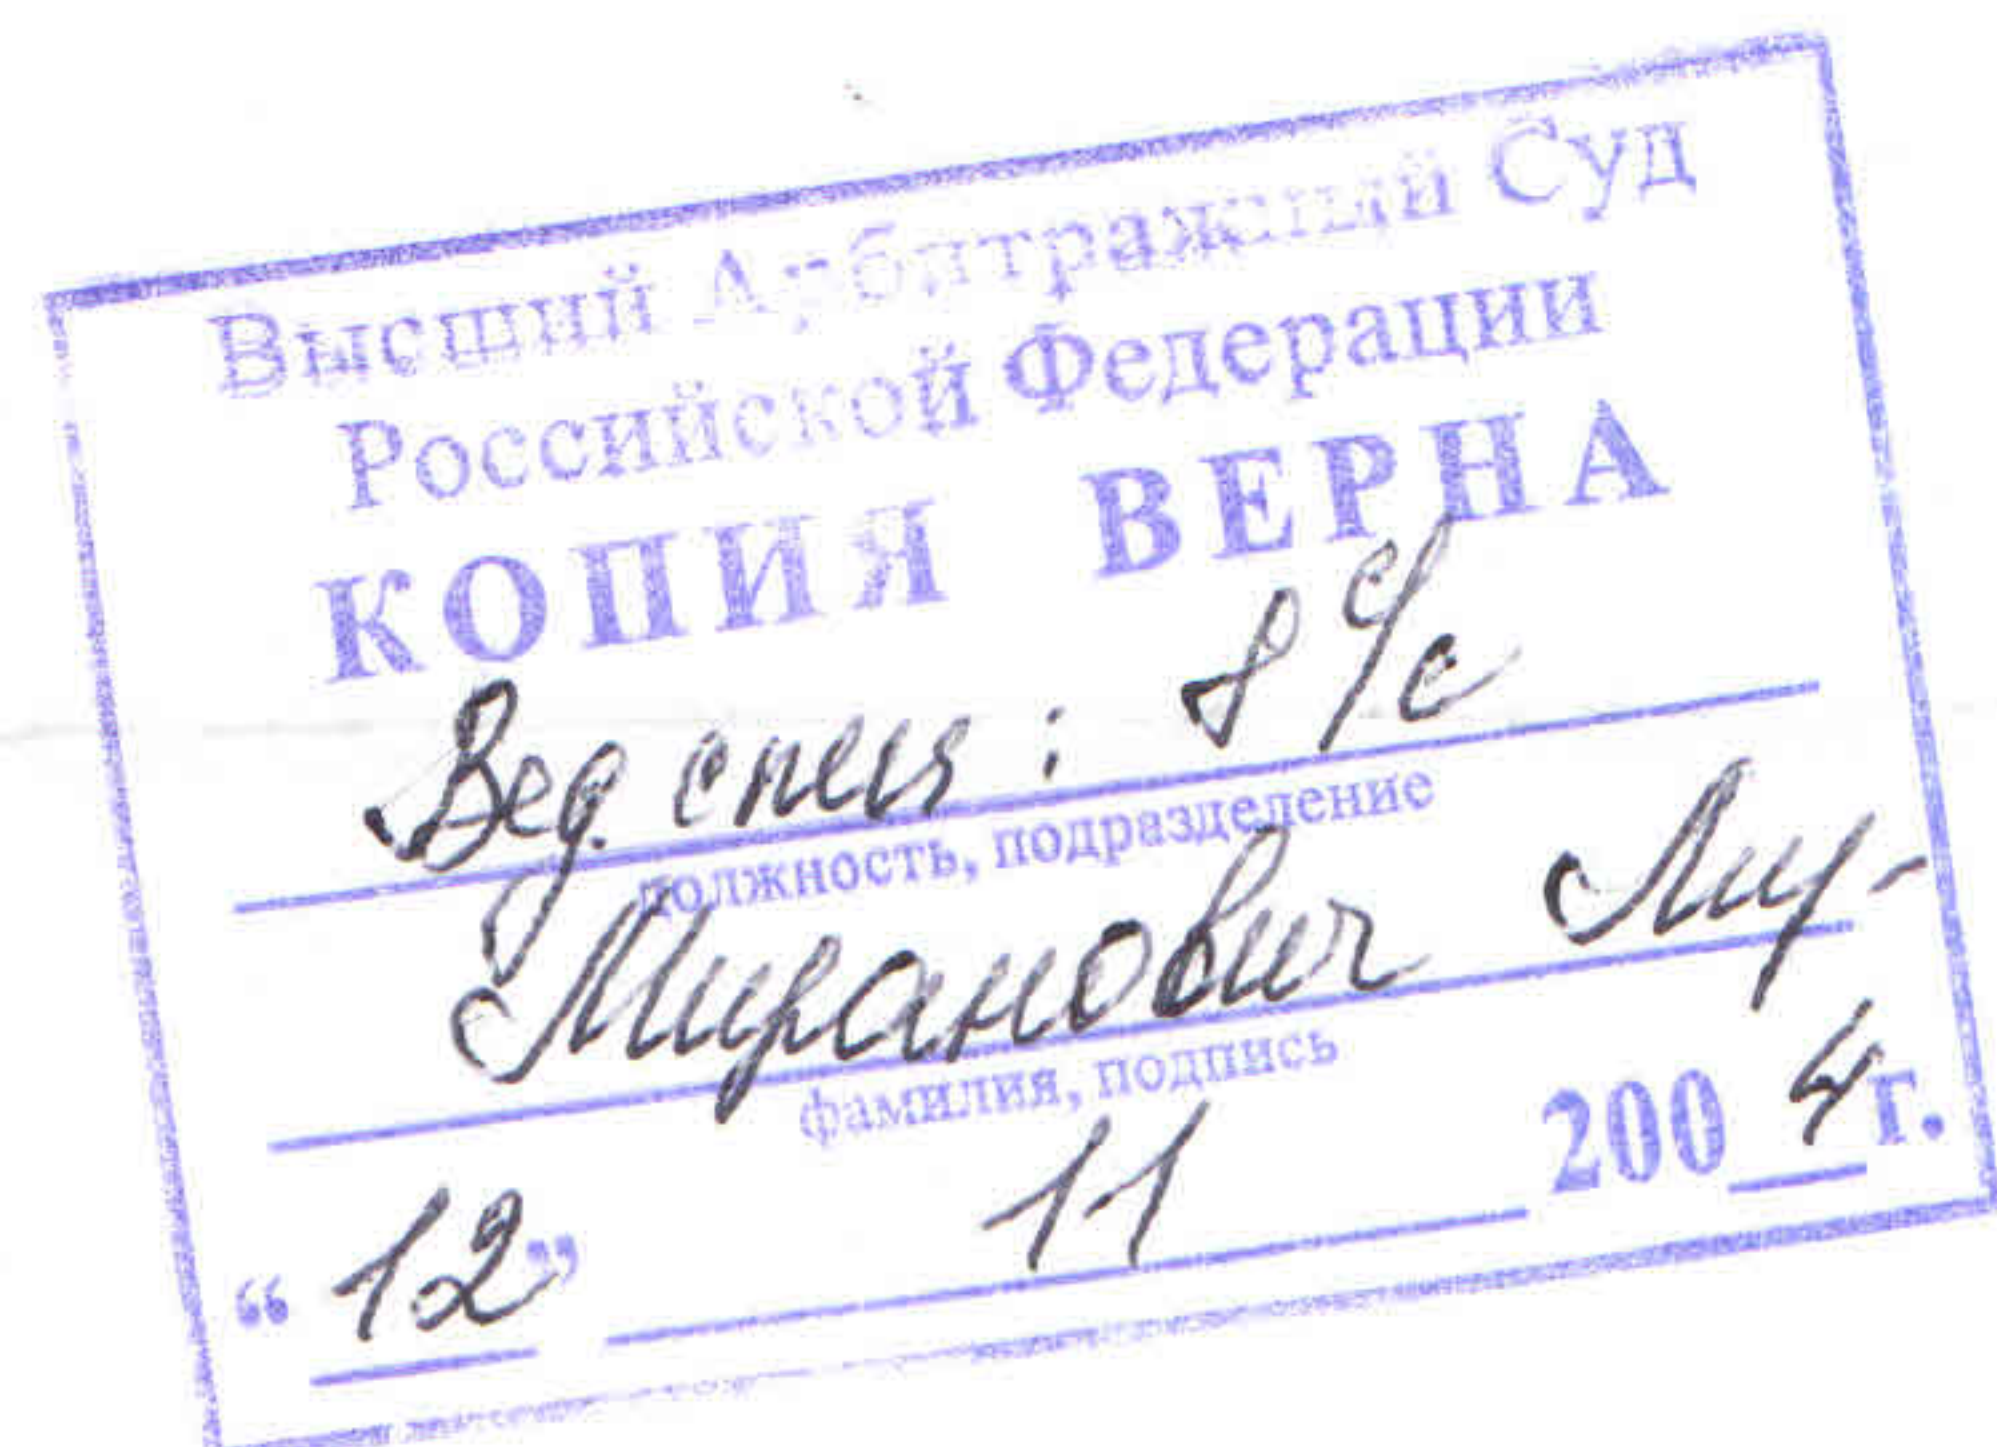 Высший Арбитражный Суд
Российской Федерации
КОПИЯ ВЕРНА
Вед. спец :
должность, подразделение
Миранович
фамилия, подпись
“ 12 ” 11 200 4 г.